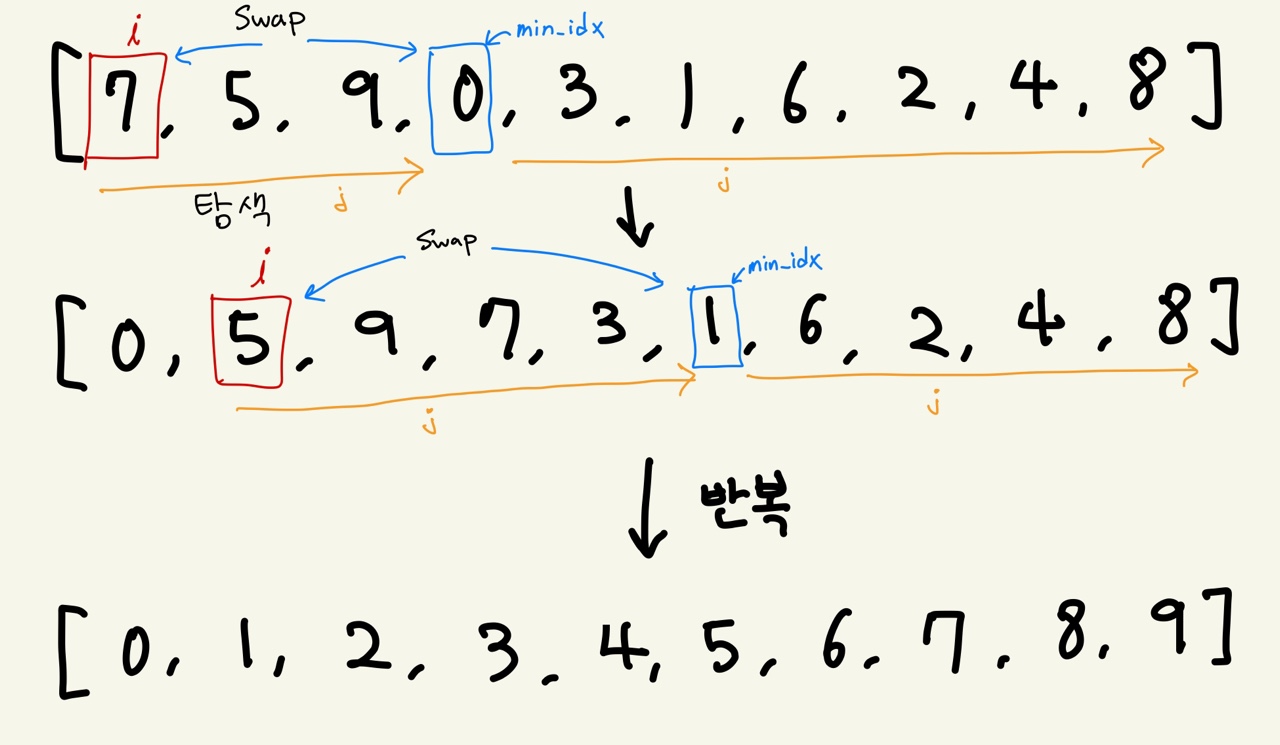 i Swap min_idx
[7, 5, 9, 0, 3, 1, 6, 2, 4, 8]
탐색 j j
i Swap min_idx
[0, 5, 9, 7, 3, 1, 6, 2, 4, 8]
j j
반복
[0, 1, 2, 3, 4, 5, 6, 7, 8, 9]